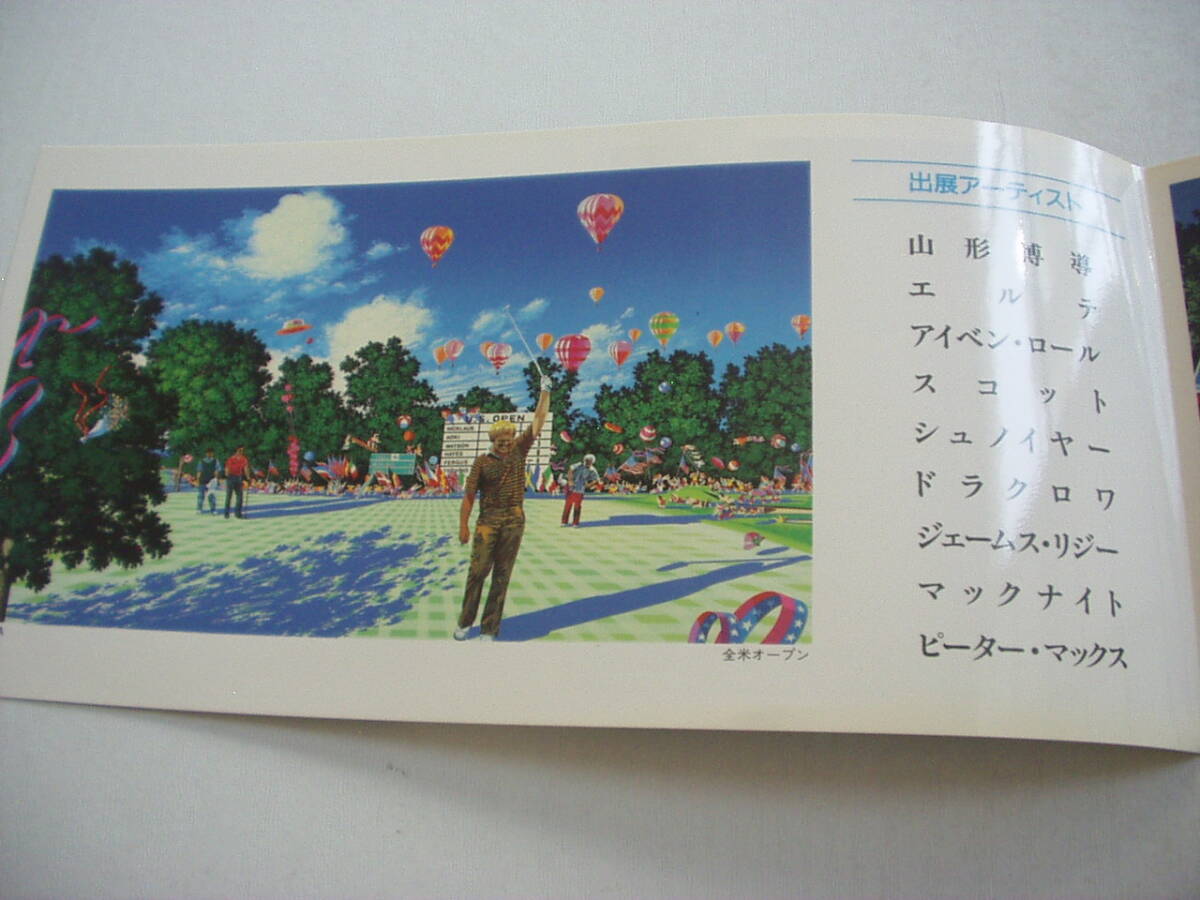 U.S. OPEN
NICKLAUS
AOKI
WATSON
HAYES
FERGUS
全米オープン
出展アーティスト
山形博導
エルテ
アイベン・ロール
スコット
シュノイヤー
ドラクロワ
ジェームス・リジー
マックナイト
ピーター・マックス